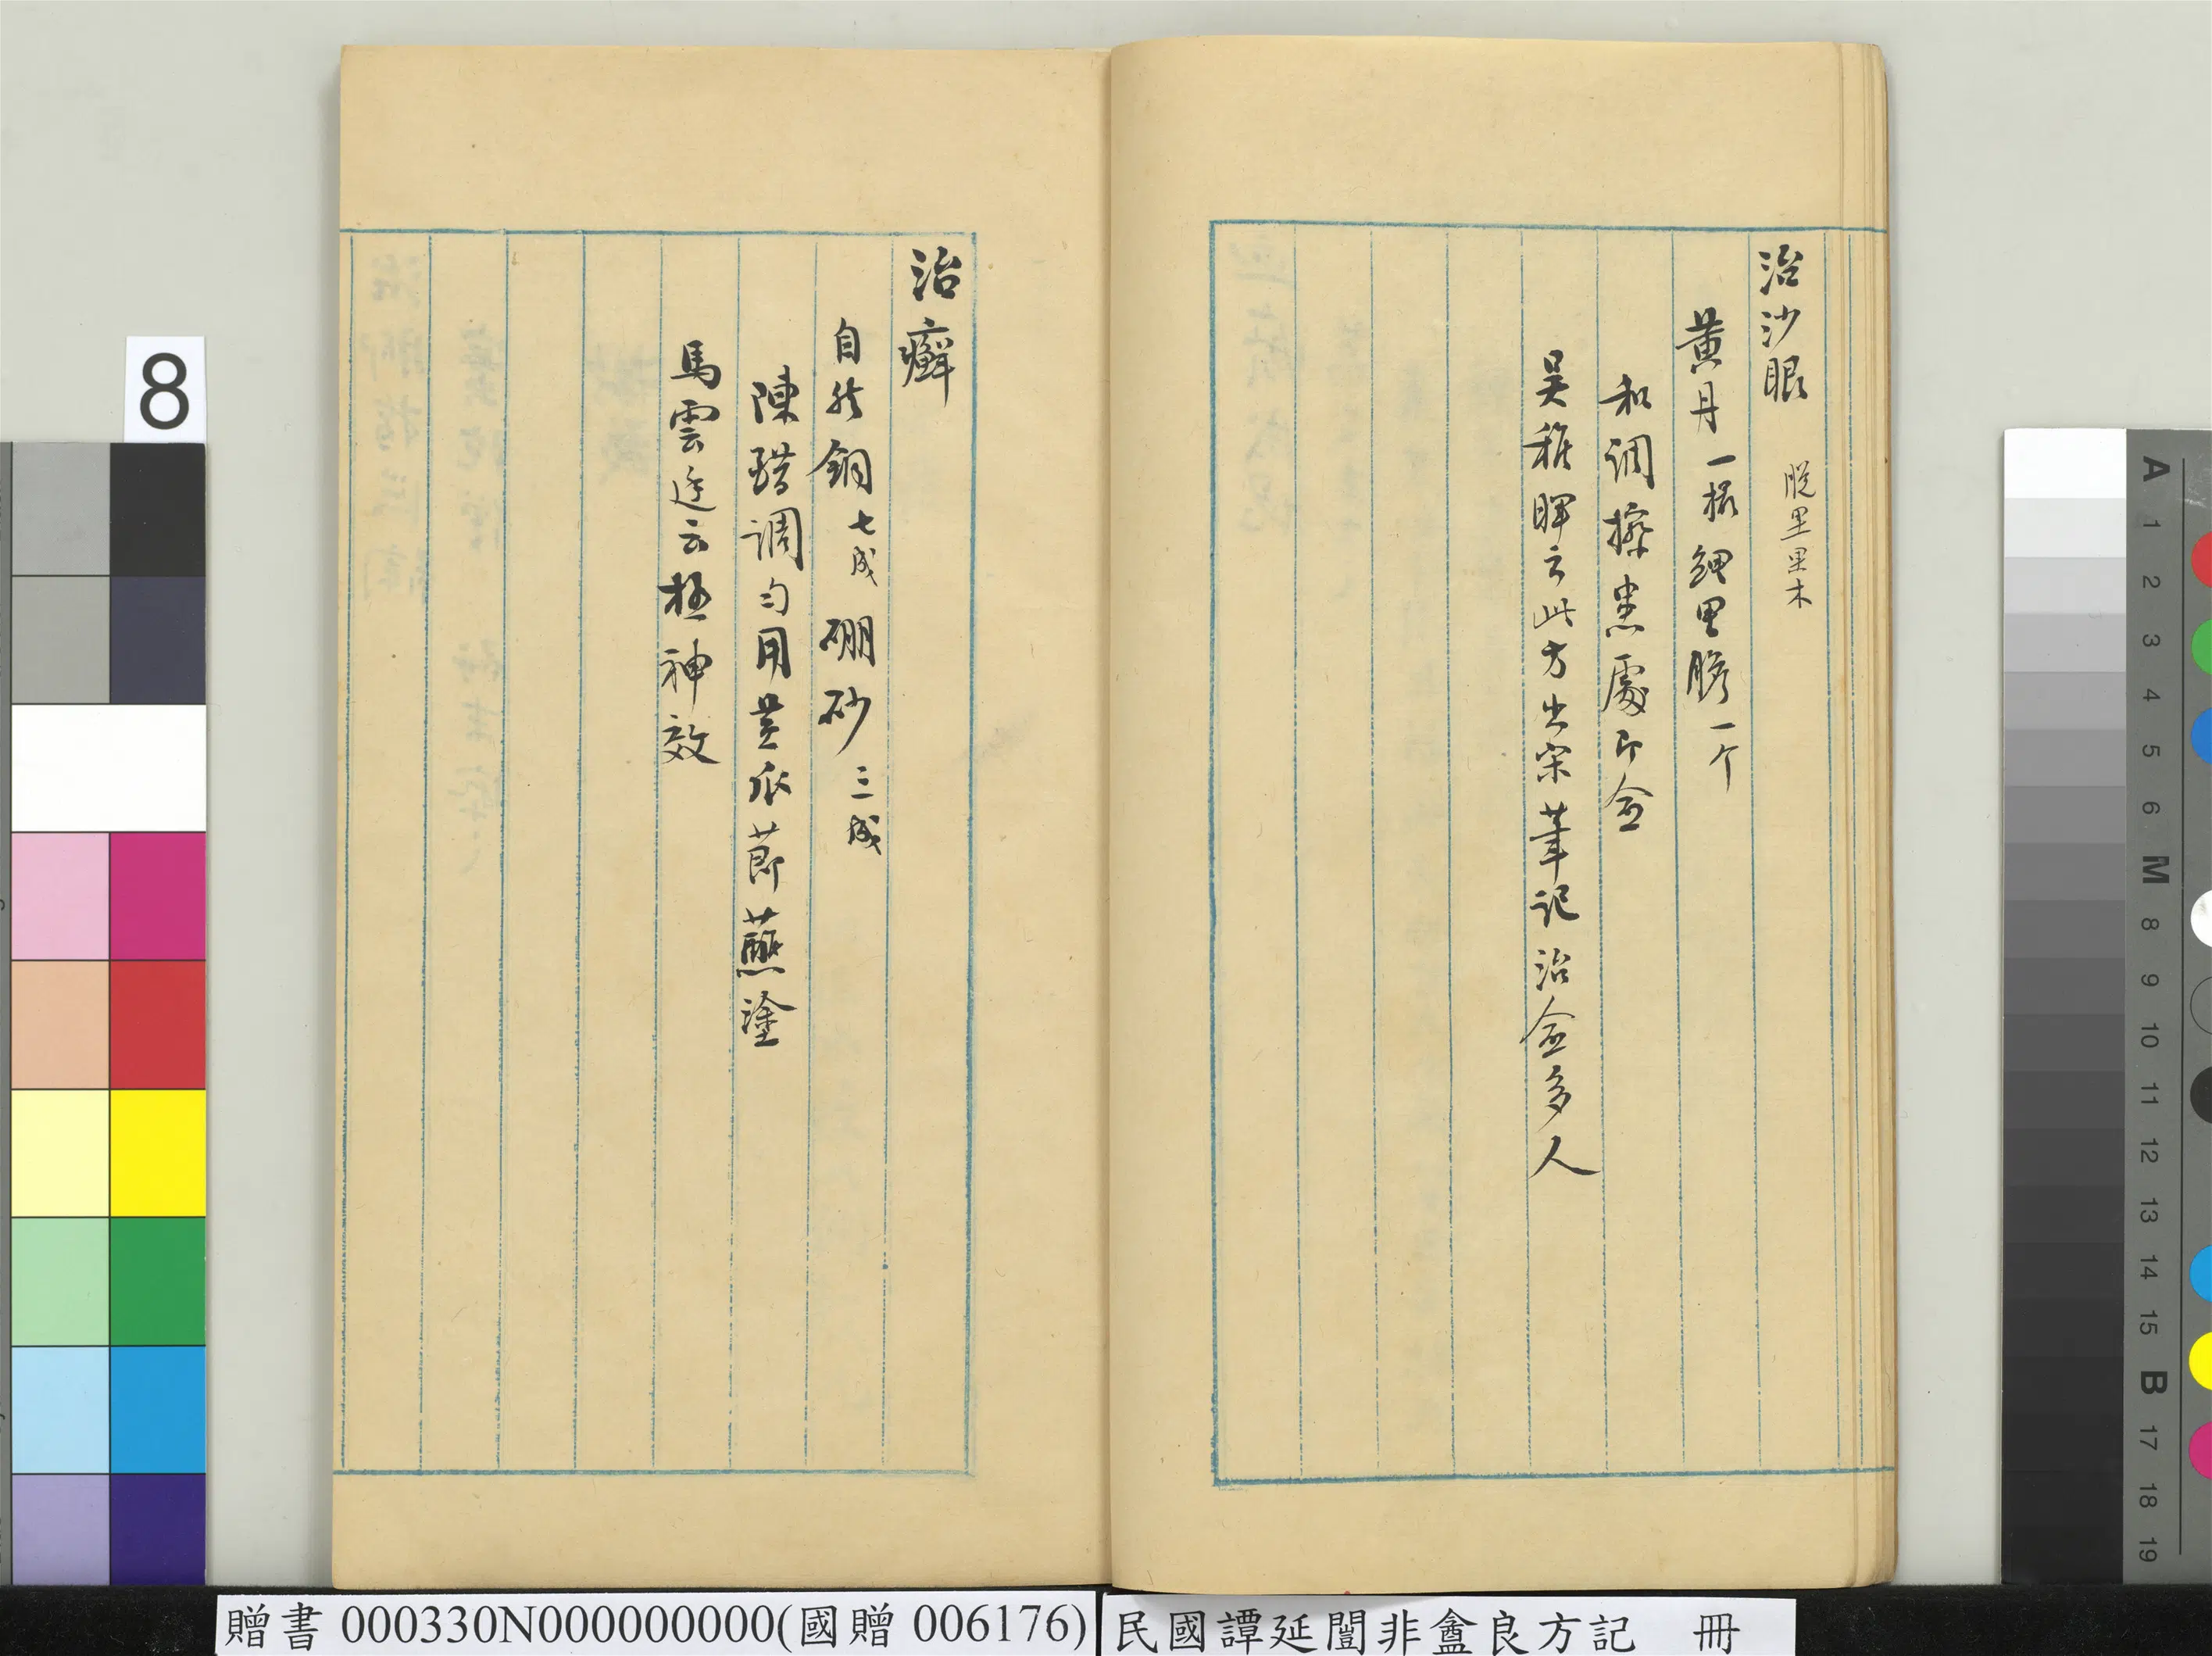 治沙眼 脫里里木
黃丹一撮 鯉魚膽一个
和調搽患處即愈
吳稚暉云此方出宋筆記治愈多人
治癬
自然銅七成 硼砂三成
陳醋調勻用黃瓜莭蘸塗
馬雲廷云極神效
8
A
1
2
3
4
5
6
M
8
9
10
11
12
13
14
15
B
17
18
19
贈書 000330N000000000(國贈 006176)
民國譚延闓非盦良方記 冊